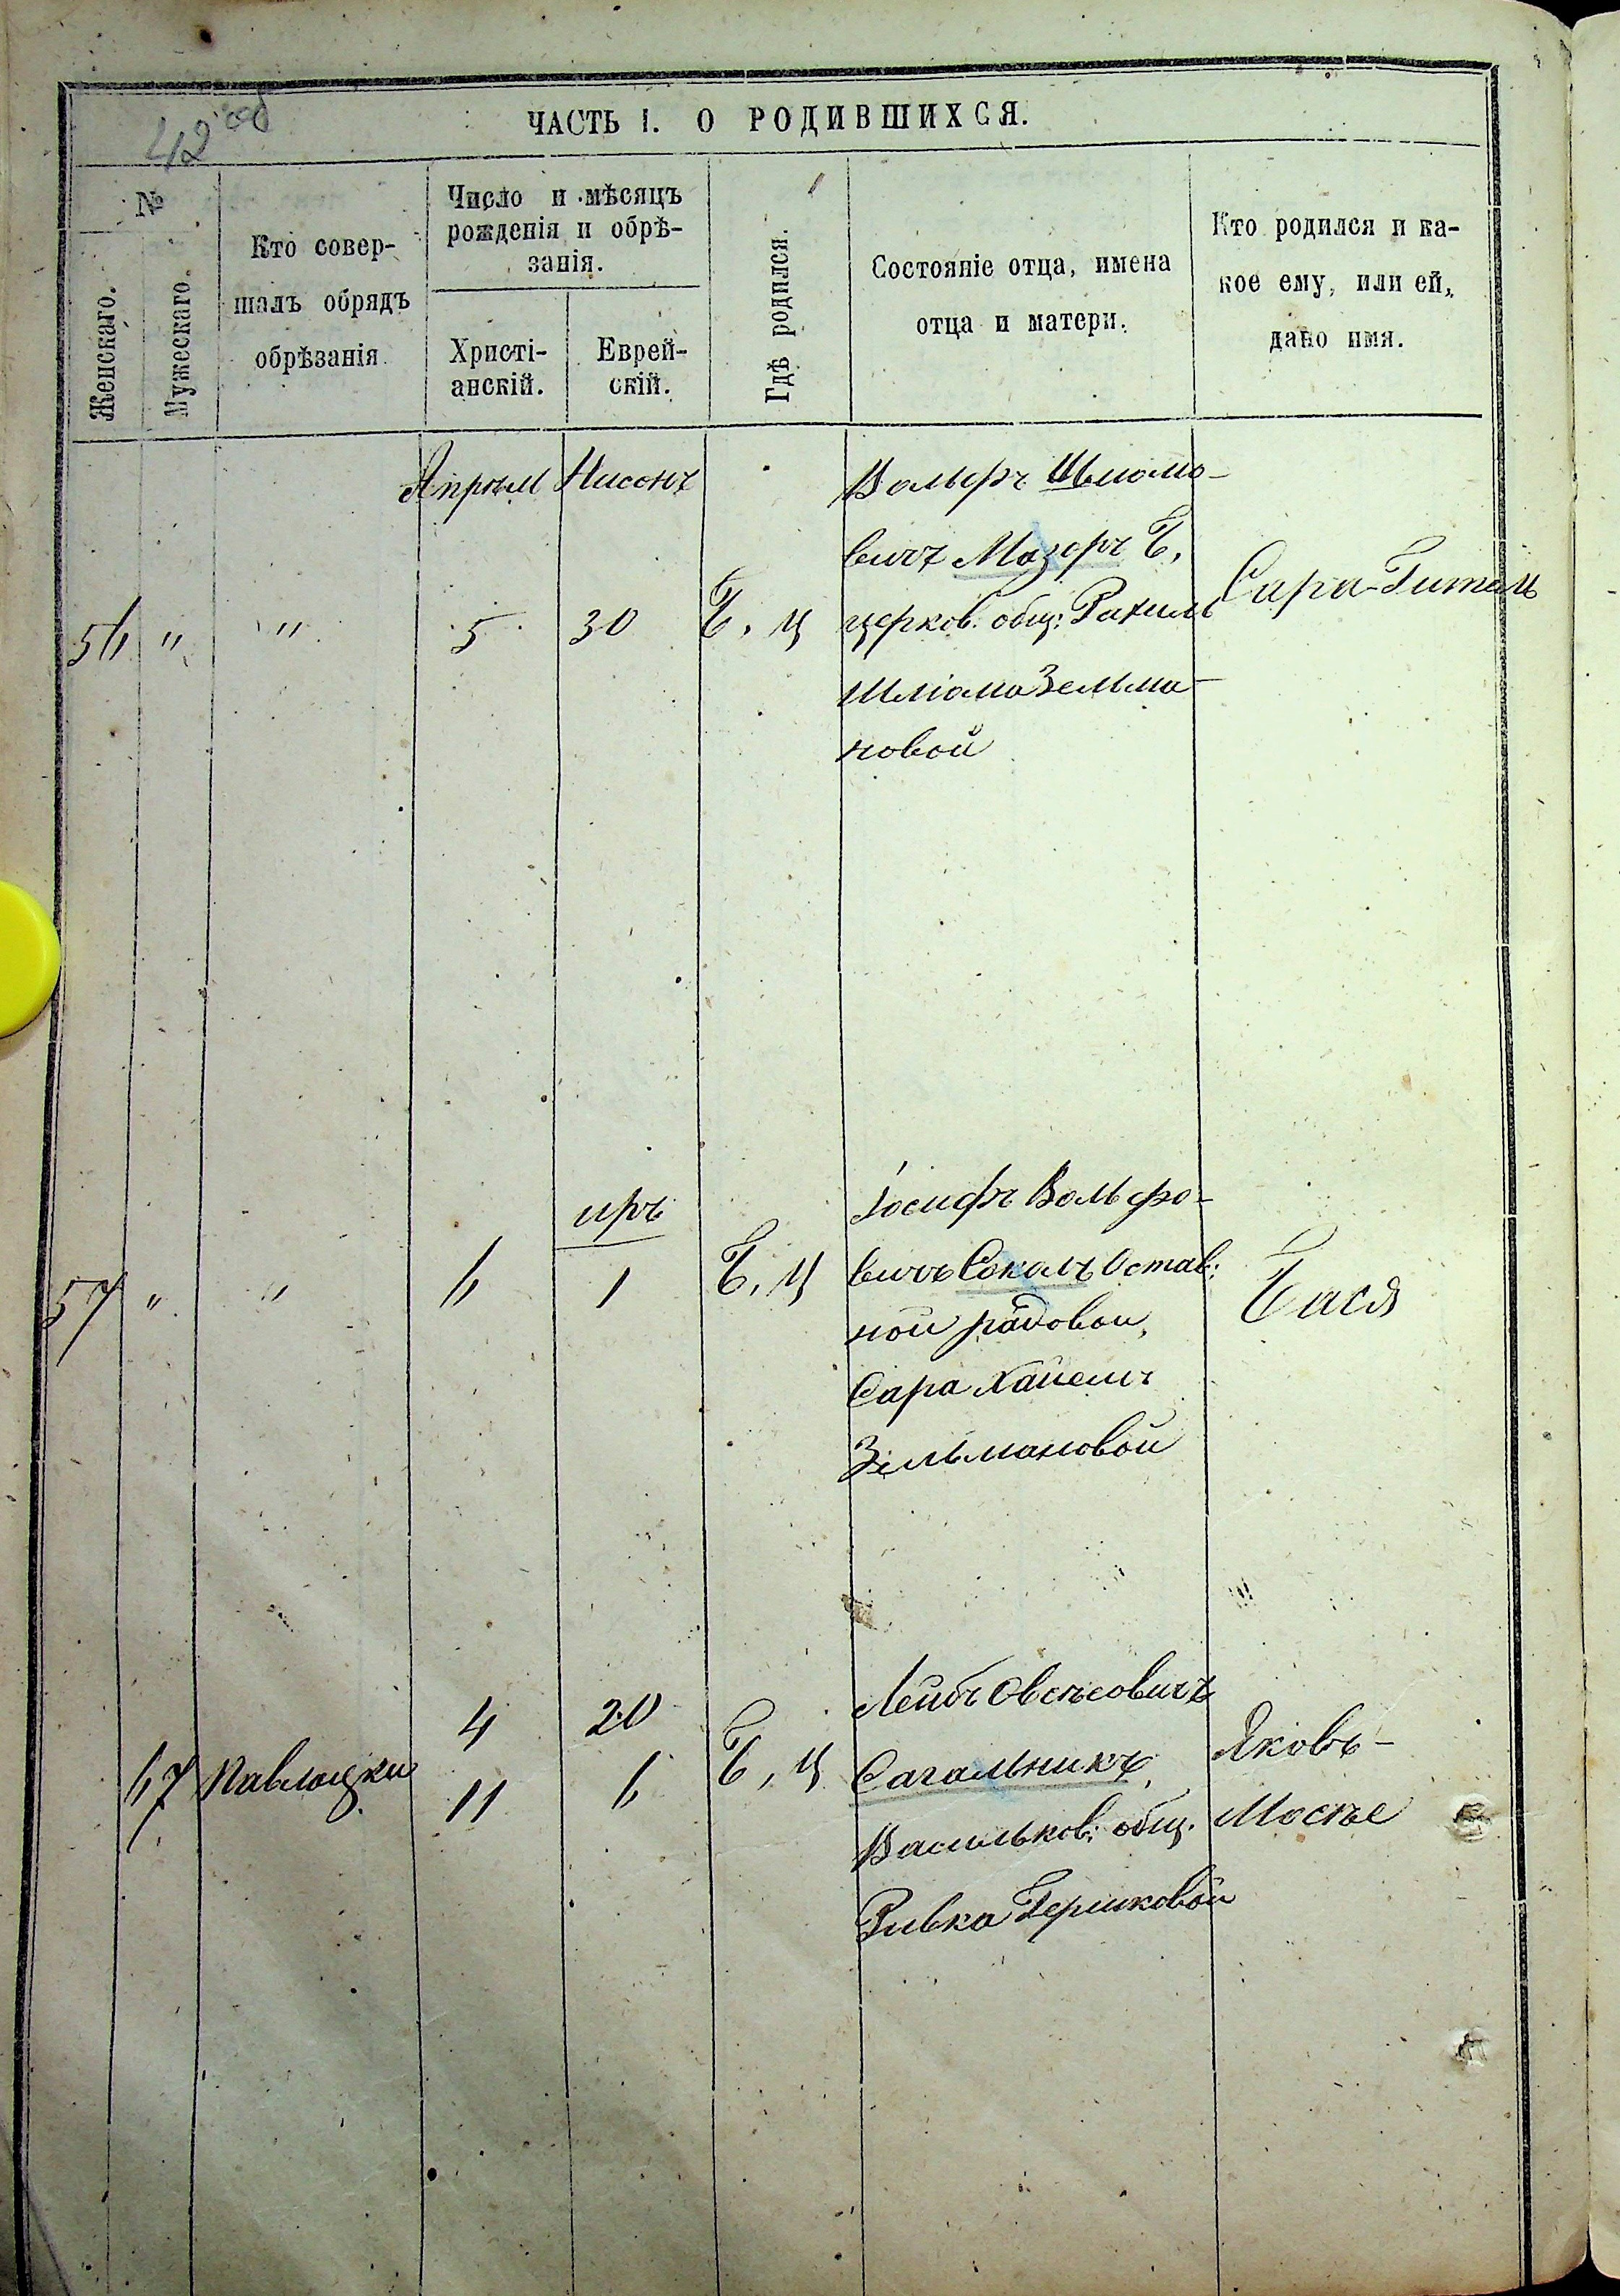 42 об
ЧАСТЬ I. О РОДИВШИХСЯ.
№
Женскаго.
Мужескаго.
Кто совер-
шалъ обрядъ
обрѣзанія
Число и мѣсяцъ
рожденія и обрѣ-
занія.
Христі-
анскій.
Еврей-
скій.
Гдѣ родился.
Состояніе отца, имена
отца и матери.
Кто родился и ка-
кое ему, или ей,
дано имя.
Апрѣль Нисонъ
56 " " 5 30 Б, Ц
Вольфъ Шлиомо-
вичъ Мазоръ Б,
церков. общ: Рахиль
Шлиома Зельма-
новой
Сара-Гитель
иръ
57 " " 6 1 Б, Ц
Іосифъ Вольфо-
вичъ Соколъ Остав:
ной рядовой,
Сара
Зельмановой
Бася
67 Павлоцки
4 20
11 6
Б, Ц
Лейбъ Овсѣевичъ
Сагальникъ,
Васильков: общ.
Ривка Гершковой
Яковъ-
Мосѣе